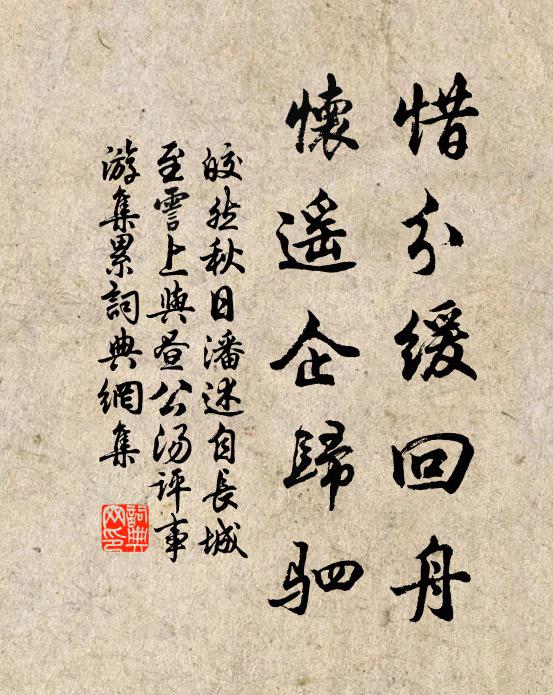 惜分缓回舟
懷遥企歸驷
皎然秋日潘述自長城
至霅上與昼公汤評事
游集累詞典網集
詞典网印